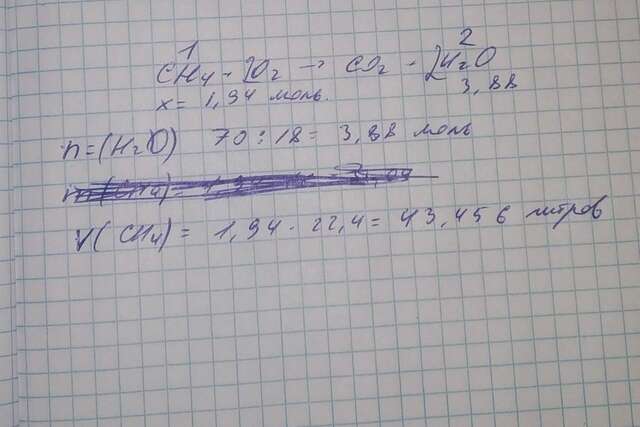 1 2
CH4 + 2O2 → CO2 + 2H2O
x = 1,94 моль. 3,88
n = (H2O) 70 : 18 = 3,88 моль
V(CH4) = 1,94 · 22,4 = 43,456 литров